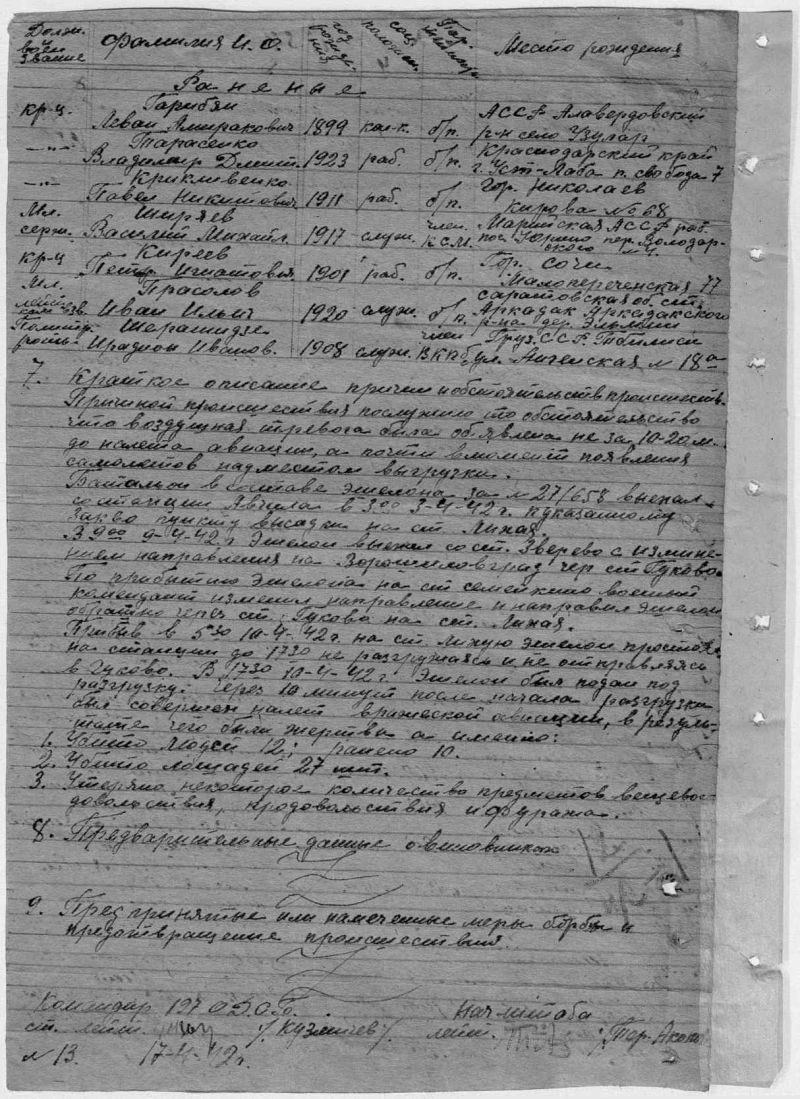 Должн. воен. звание Фамилия И. О. год рожде-ния соц. положен. Парт. Место рождения
Раненые
кр-ц. Гарибян АССР Алавердовский
Леван Амиракович 1899 кол-к. б/п. р-н село Узулар
—"— Тарасенко Краснодарский край
Владимир Дмит. 1923 раб. б/п. г. Уст-Лаба п. свобода 7
—"— Крикливенко гор. Николаев
Павел Никитович 1911 раб. б/п. Кирова № 68
Мл. Ширяев член Марийская АССР раб.
серж. Василий Михайл. 1917 служ. КСМ. пос. Юрино пер. Володар-
ского № 4.
кр-ц Киреев Гор. Сочи
Петр Игнатович. 1901 раб. б/п. Малопереченская 77
Мл. Прасолов Саратовская об. ст.
лейт. Иван Ильич 1920 служ. б/п. Аркадак Аркадакского
р-на дер.
Политр. Шерашидзе член Груз. ССР. Тбилиси
роты Ирадион Иванов. 1908 служ. ВКПб ул. № 18а
7. Краткое описание причин и обстоятельств происшеств.
Причиной происшествия послужило то обстоятельство
что воздушная тревога была объявлена не за 10-20 м.
до налета авиации, а почти в момент появления
самолетов над местом выгрузки.
Батальон в составе эшелона за № 27/658 выехал
со станции Авчала в 3⁰⁰ 3-4-42г. к указанному
Закво пункту высадки на ст. Лихая.
В 9⁰⁰ 9-4-42г эшелон выехал со ст. Зверево с измине-
нием направления на Ворошиловград чер. ст Гуково.
По прибытию эшелона на ст семейкино военный
комендант изменил направление и направил эшелон
обратно через ст. Гуково на ст. Лихая.
Прибыв в 5³⁰ 10-4-42г. на ст. Лихую эшелон простоял
на станции до 1730 не разгружаясь и не отправляясь
в Гуково. В 1730 10-4-42г. Эшелон был подан под
разгрузку. Через 10 минут после начала разгрузки
был совершен налет вражеской авиации, в резуль-
тате чего были жертвы а именно:
1. Убито людей 12; ранено 10.
2. Убито лошадей 27 шт.
3. Утеряно некоторое количество предметов вещево-
довольствия, продовольствия и фуража.
8. Предварительные данные о виновниках
9. Предпринятые или намеченные меры борьбы и
предотвращение происшествия.
Командир 197 О.Д.С.Б. Нач. штаба
ст. лейт. /Кузмичев/. лейт. /Тер-
№ 13. 17-4-42г.